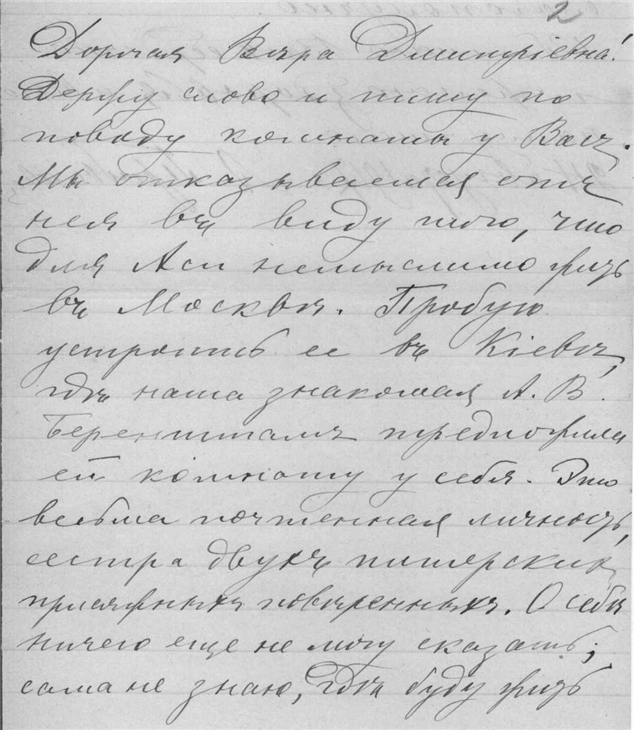 2
Дорогая Вѣра Дмитріевна!
Держу слово и пишу по
поводу комнаты у Васъ.
Мы отказываемся отъ
нея въ виду того, что
для Аси немыслимо жить
въ Москвѣ. Пробую
устроить ее въ Кіевѣ,
гдѣ наша знакомая А. В.
Беренштамъ предложила
ей комнату у себя. Это
весьма почтенная личность,
сестра двухъ питерскихъ
присяжныхъ повѣренныхъ. О себѣ
ничего еще не могу сказать;
сама не знаю, гдѣ буду жить